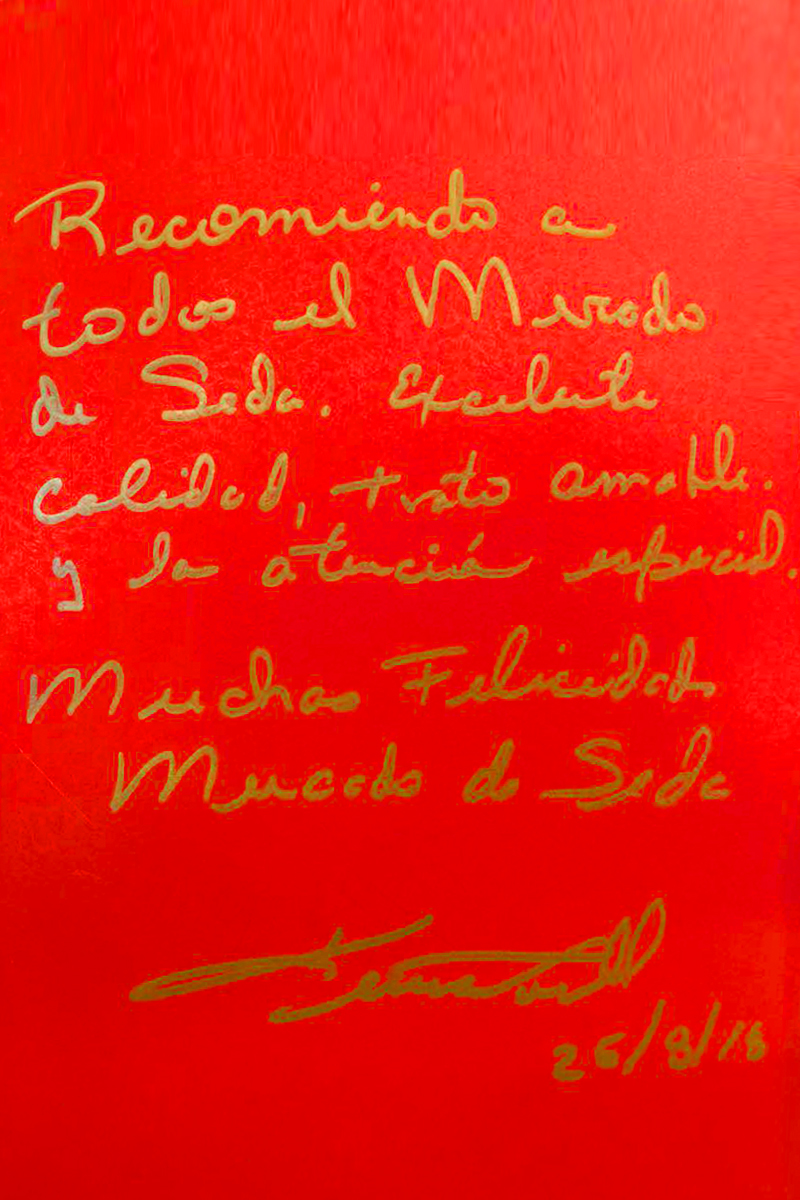 Recomiendo a
todos el Mercado
de Seda. Excelente
calidad, trato amable.
y la atención especial.
Muchas Felicidades
Mercado de Seda
26/8/18